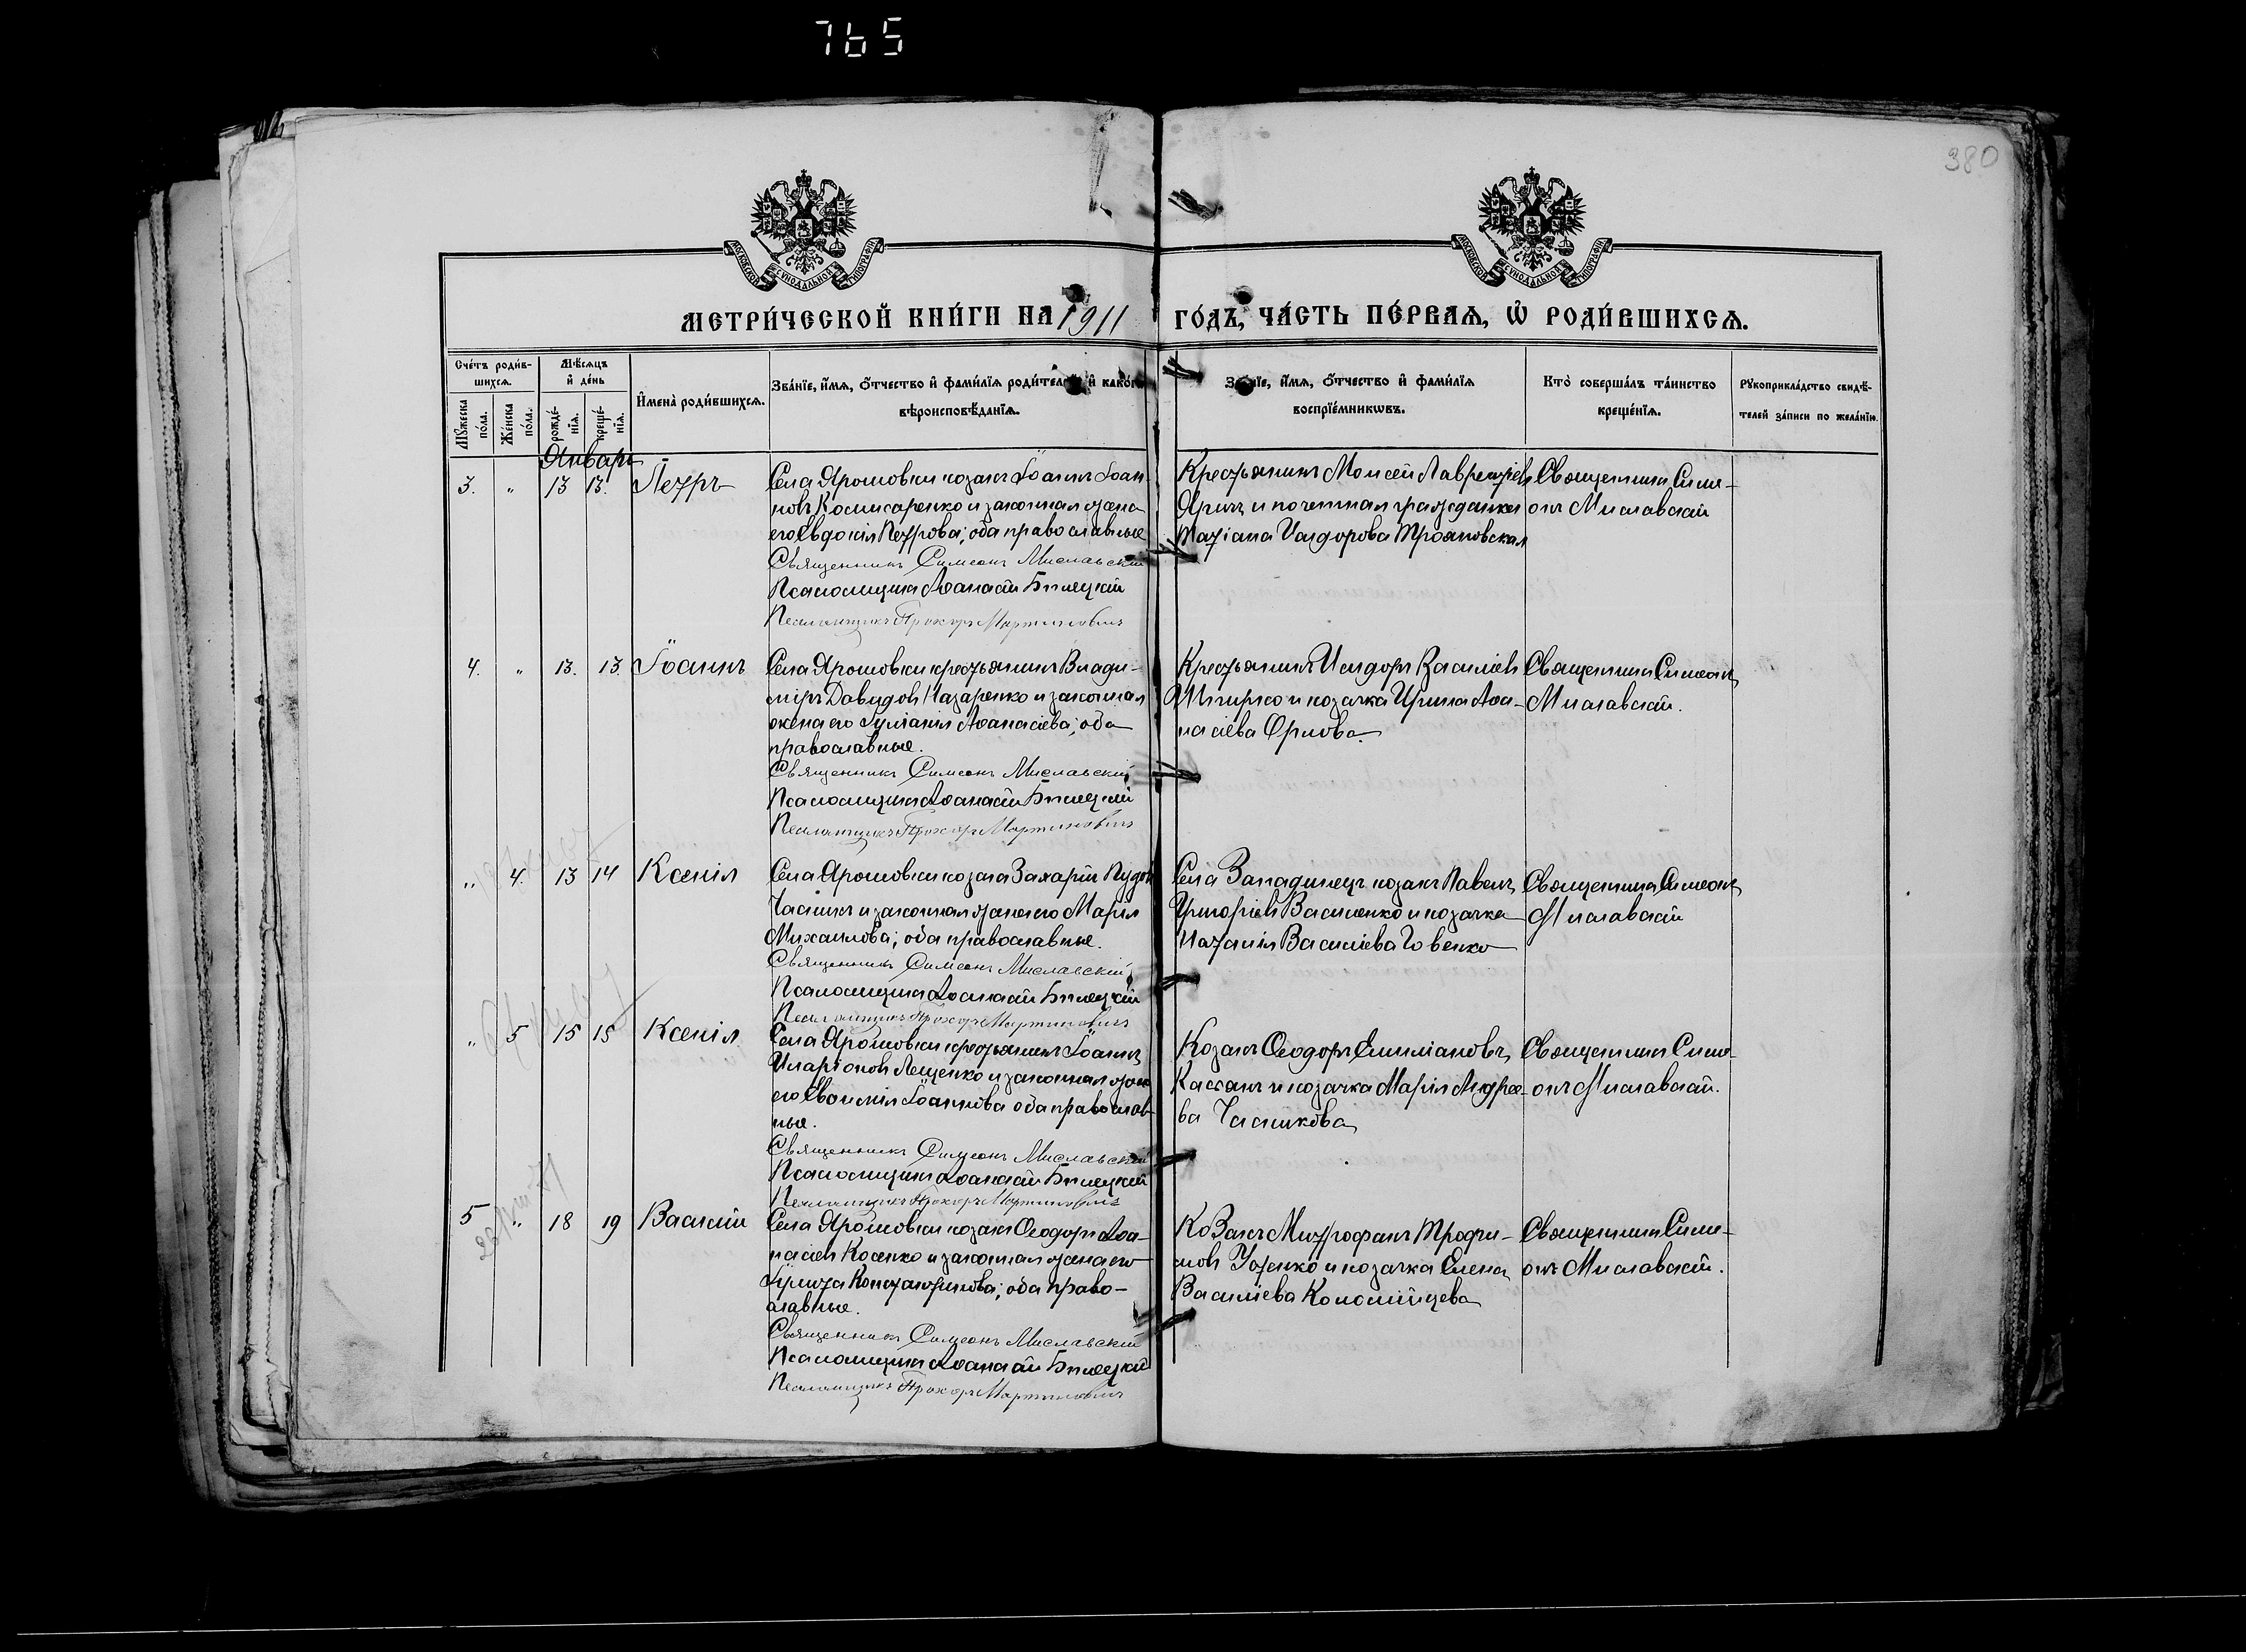 765
380
МОСКОВСКОЙ СѴНОДАЛЬНОЙ ТИПОГРАФІИ
МОСКОВСКОЙ СѴНОДАЛЬНОЙ ТИПОГРАФІИ
МЕТРИ́ЧЕСКОЙ КНИ́ГИ НА 1911 ГО́ДЪ, ЧА́СТЬ ПЕ́РВАѦ, Ѡ҆ РОДИ́ВШИХСѦ.
Сче́тъ роди́в-
шихсѧ.
Мѣ́сѧцъ
и҆ де́нь
Мꙋ́жеска по́ла.
Же́нска по́ла.
рожде́-
нїѧ.
креще́-
нїѧ.
И҆мена̀ роди́вшихсѧ.
Зва́нїе, и҆́мѧ, ѻ҆́тчество и҆ фами́лїѧ роди́телей, и҆ како́гѡ
вѣроисповѣ́данїѧ.
Зва́нїе, и҆́мѧ, ѻ҆́тчество и҆ фами́лїѧ
воспрїе́мникѡвъ.
Кто̀ соверша́лъ та́инство
креще́нїѧ.
Рꙋкоприкла́дство свидѣ́-
телей за́писи по жела́нїю.
Январь
3. " 13 13. Петръ
Села Ярошовки козакъ Іоаннъ Іоан-
новъ Комисаренко и законная жена
его Евдокія Петрова; оба православные
Священникъ Симеонъ Миславскій
Псаломщикъ Аѳанасій Билецкій
Псаломщикъ Прохоръ Мартиновичъ
Крестьянинъ Моисей Лаврентіевъ
Яричъ и почетная гражданка
Татіана Исидорова Трояновская
Священникъ Симе-
онъ Миславскій
4. " 13. 13. Іоаннъ
Села Ярошовки крестьянинъ Влади-
міръ Давидовъ Назаренко и законная
жена его Іуліанія Аѳанасіева; оба
православные.
Священникъ Симеонъ Миславскій
Псаломщикъ Аѳанасій Билецкій
Псаломщикъ Прохоръ Мартиновичъ
Крестьянинъ Исидоръ Василіевъ
и козачка Ирина Аѳа-
насіева Орлова
Священникъ Симеонъ
Миславскій.
" 4. 13 14 Ксенія
Села Ярошовки козакъ Захарій
Часникъ и законная жена его Марія
Михаилова; оба православные.
Священникъ Симеонъ Миславскій
Псаломщикъ Аѳанасій Билецкій
Псаломщикъ Прохоръ Мартиновичъ
Села Западинецъ козакъ Павелъ
Григоріевъ Василенко и козачка
Наталія Василіева
Священникъ Симеонъ
Миславскій
" 5 15 15 Ксенія
Села Ярошовки крестьянинъ Іоаннъ
Иларіоновъ Лещенко и законная жена
его Евфимія Іоаннова оба православ-
ные.
Священникъ Симеонъ Миславскій
Псаломщикъ Аѳанасій Билецкій
Псаломщикъ Прохоръ Мартиновичъ
Козакъ Ѳеодоръ Емиліановъ
Кассанъ и козачка Марія Андрее-
ва Часникова
Священникъ Симе-
онъ Миславскій.
5 " 18 19 Василій
Села Ярошовки козакъ Ѳеодоръ Аѳа-
насіевъ Косенко и законная жена его
Іулитта Константинова; оба право-
славные.
Священникъ Симеонъ Миславскій
Псаломщикъ Аѳанасій Билецкій
Псаломщикъ Прохоръ Мартиновичъ
Козакъ Митрофанъ Трофи-
мовъ и козачка Елена
Василіева Коломійцева
Священникъ Симе-
онъ Миславскій.